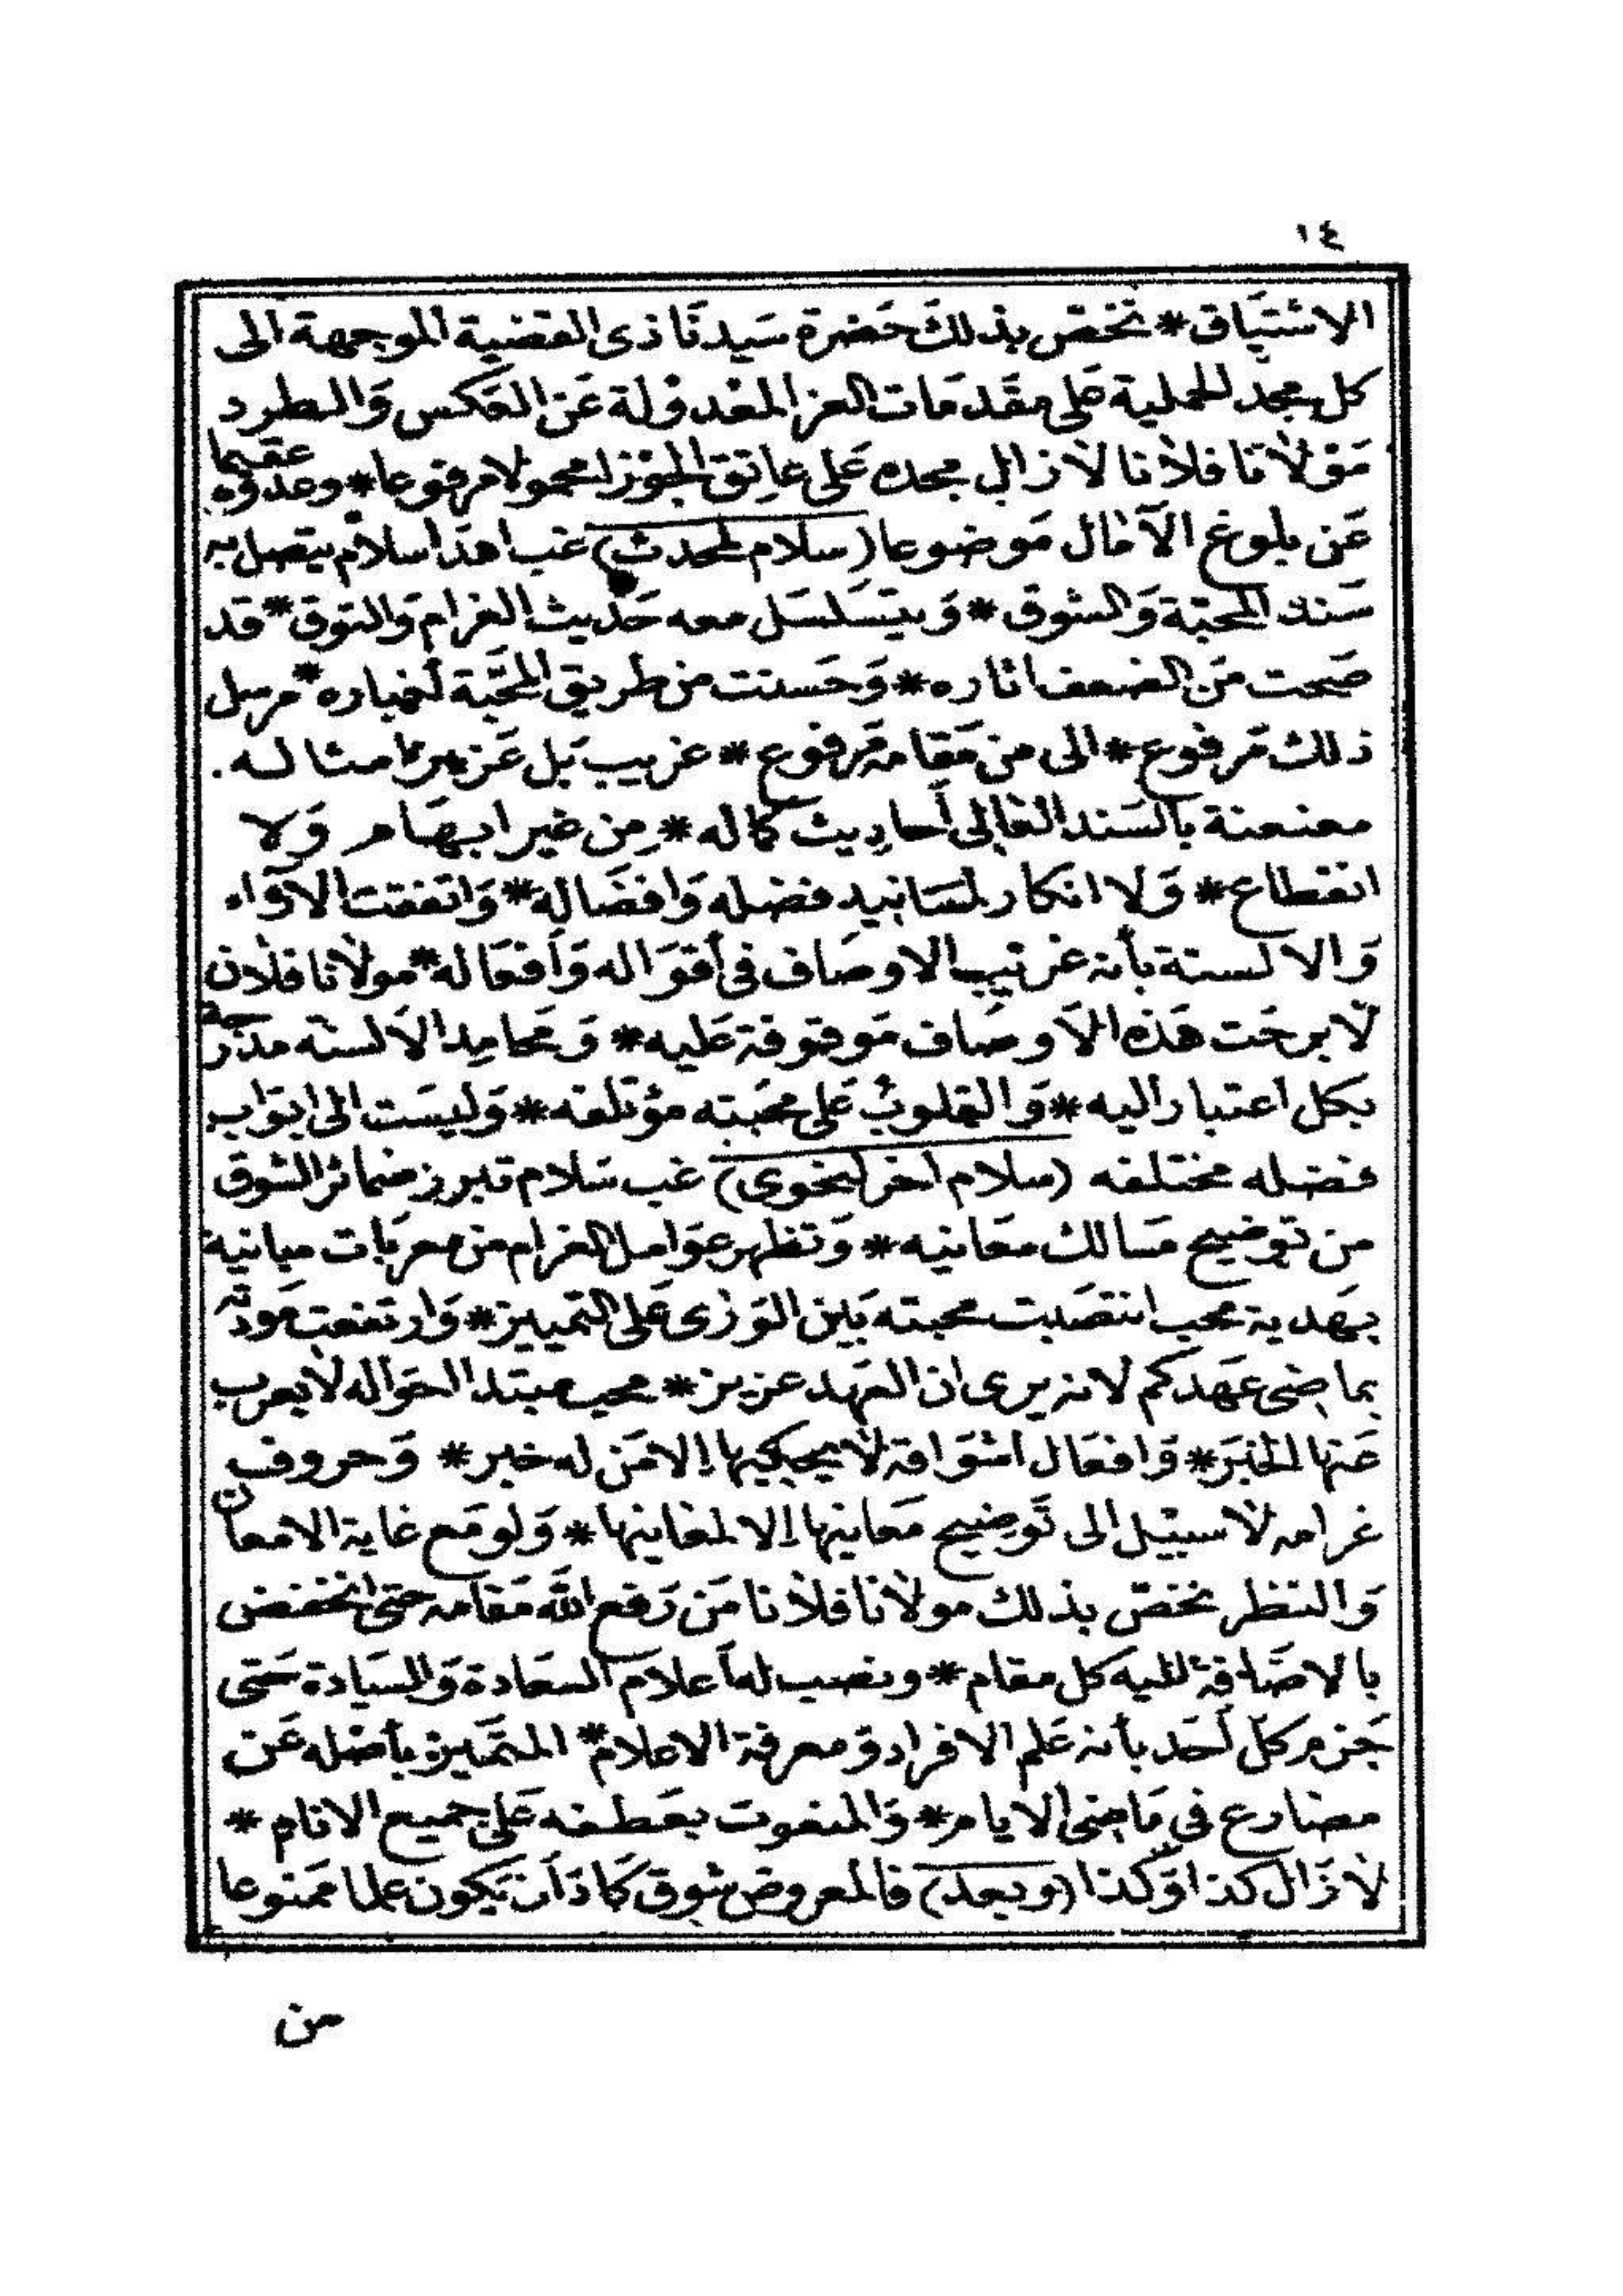 ١٤
الاشتياق * نخص بذلك حضرة سيدنا ذى القضية الموجهة الى
كل مجد الحملية على مقدمات العز المعدولة عن العكس والطرد
مولانا فلانا لا زال مجده على عاتق الجوزا محمولا مرفوعا * وعدوه عقيما
عن بلوغ الآمال موضوعا (سلام لمحدث) غب اهدا سلام يتصل به
سند المحبة والشوق * ويتسلسل معه حديث الغرام والتوق * قد
صحت من الضعف اثاره * وحسنت من طريق المحبة أخباره * مرسل
ذلك مرفوع * الى من مقامه مرفوع * غريب بل عزيز امثاله .
معنعنة بالسند العالى أحاديث كماله * من غير ابهام ولا
انقطاع * ولا انكار لمسانيد فضله وافضاله * واتفقت الآراء
والالسنة بأنه غريب الاوصاف فى أقواله وأفعاله * مولانا فلان
لا برحت هذه الاوصاف موقوفة عليه * ومحامد الالسنه مدرجة
بكل اعتبار اليه * والقلوب على محبته مؤتلفه * وليست الى ابواب
فضله مختلفه (سلام اخر لنحوى) غب سلام تبرز ضمائر الشوق
من توضيح مسالك معانيه * وتظهر عوامل الغرام من معربات مبانية
يهديه محب انتصبت محبته بين الورى على التمييز * وارتفعت مودته
بماضى عهدكم لانه يرى ان العهد عزيز * محب مبتدا احواله لا يعرب
عنها الخبر * وافعال اشواقه لا يحكيها إلا من له خبر * وحروف
غرامه لا سبيل الى توضيح معانيها إلا لمعانيها * ولو مع غاية الامعان
والنظر نخص بذلك مولانا فلانا من رفع الله مقامه حتى انخفض
بالاضافة اليه كل مقام * ونصب له أعلام السعادة والسيادة حتى
جزم كل أحد بأنه علم الافراد ومعرفة الاعلام * المتميز بأصله عن
مضارع فى ماضى الايام * والمنعوت بعطفه على جميع الانام *
لا زال كذا وكذا (وبعد) فالمعروض شوق كاد أن يكون علما ممنوعا
من